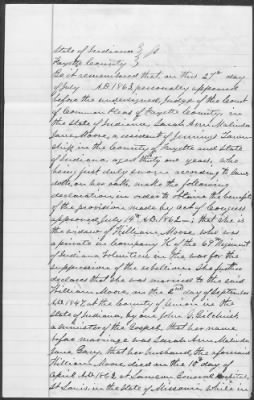 State of Indiana } ss
Fayette County }
Be it remembered that on this 27th day
of July A.D. 1863 personally appeared
before the undersigned, Judge of the Court
of Common Pleas of Fayette County, in
the State of Indiana, Sarah Ann Malinda
Jane Moore, a resident of Jennings Town
ship in the County of Fayette and State
of Indiana, aged thirty one years, who
being first duly sworn according to law
doth, on her oath, make the following
declaration in order to obtain the benefit
of the provision made by act of Congress
approved July 14th A.D. 1862: that she is
the widow of William Moore, who was
a private in Company K of the 69 Regiment
of Indiana Volunteers in the war for the
suppression of the rebellion. She further
declares that she was married to the said
William Moore on the 2nd day of September
A.D. 1847 at the County of Union in the
State of Indiana, by one John G. Gilchrist
a minister of the Gospel, that her name
before marriage was Sarah Ann Malinda
Jane that her husband, the aforesaid
William Moore died on the 18th day of
April A.D. 1863, at Lawson General Hospital,
St Louis, in the State of Missouri while in